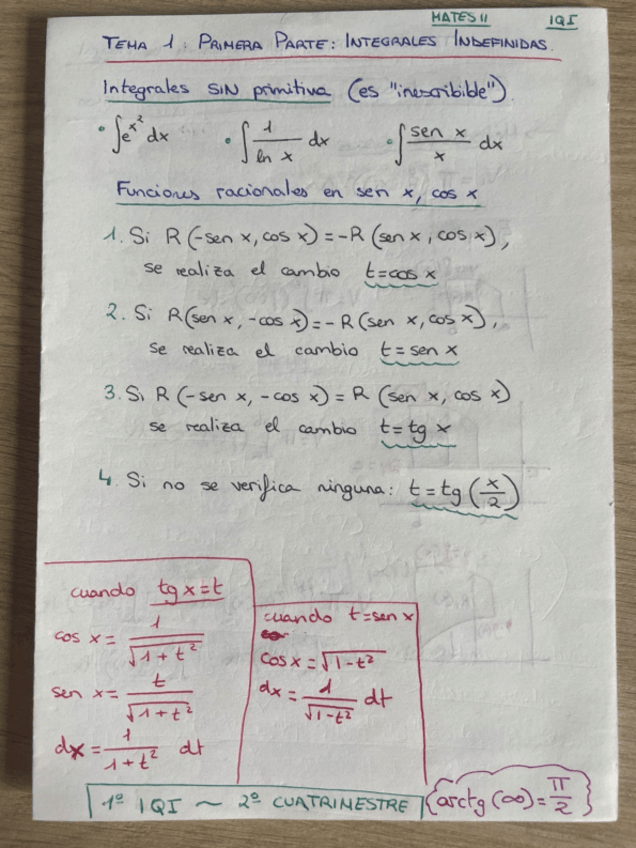 MATES II 1QI
TEMA 1: PRIMERA PARTE: INTEGRALES INDEFINIDAS.
Integrales SIN primitiva (es "inescribible")
• ∫e^x² dx • ∫ 1/ln x dx • ∫ sen x/x dx
Funciones racionales en sen x, cos x
1. Si R(-sen x, cos x) = -R(sen x, cos x),
se realiza el cambio t=cos x
2. Si R(sen x, -cos x) = -R(sen x, cos x),
se realiza el cambio t=sen x
3. Si R(-sen x, -cos x) = R(sen x, cos x)
se realiza el cambio t=tg x
4. Si no se verifica ninguna: t=tg(x/2)
cuando tg x=t
cos x= 1/√(1+t²)
sen x= t/√(1+t²)
dx = 1/(1+t²) dt
cuando t=sen x
cos x = √(1-t²)
dx = 1/√(1-t²) dt
1º IQI ~ 2º CUATRIMESTRE
arctg(∞)=π/2